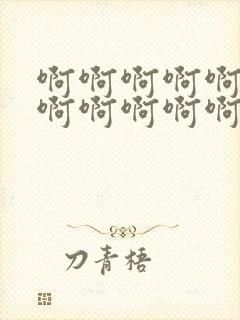 啊啊啊啊啊
啊啊啊啊啊
刀青梧